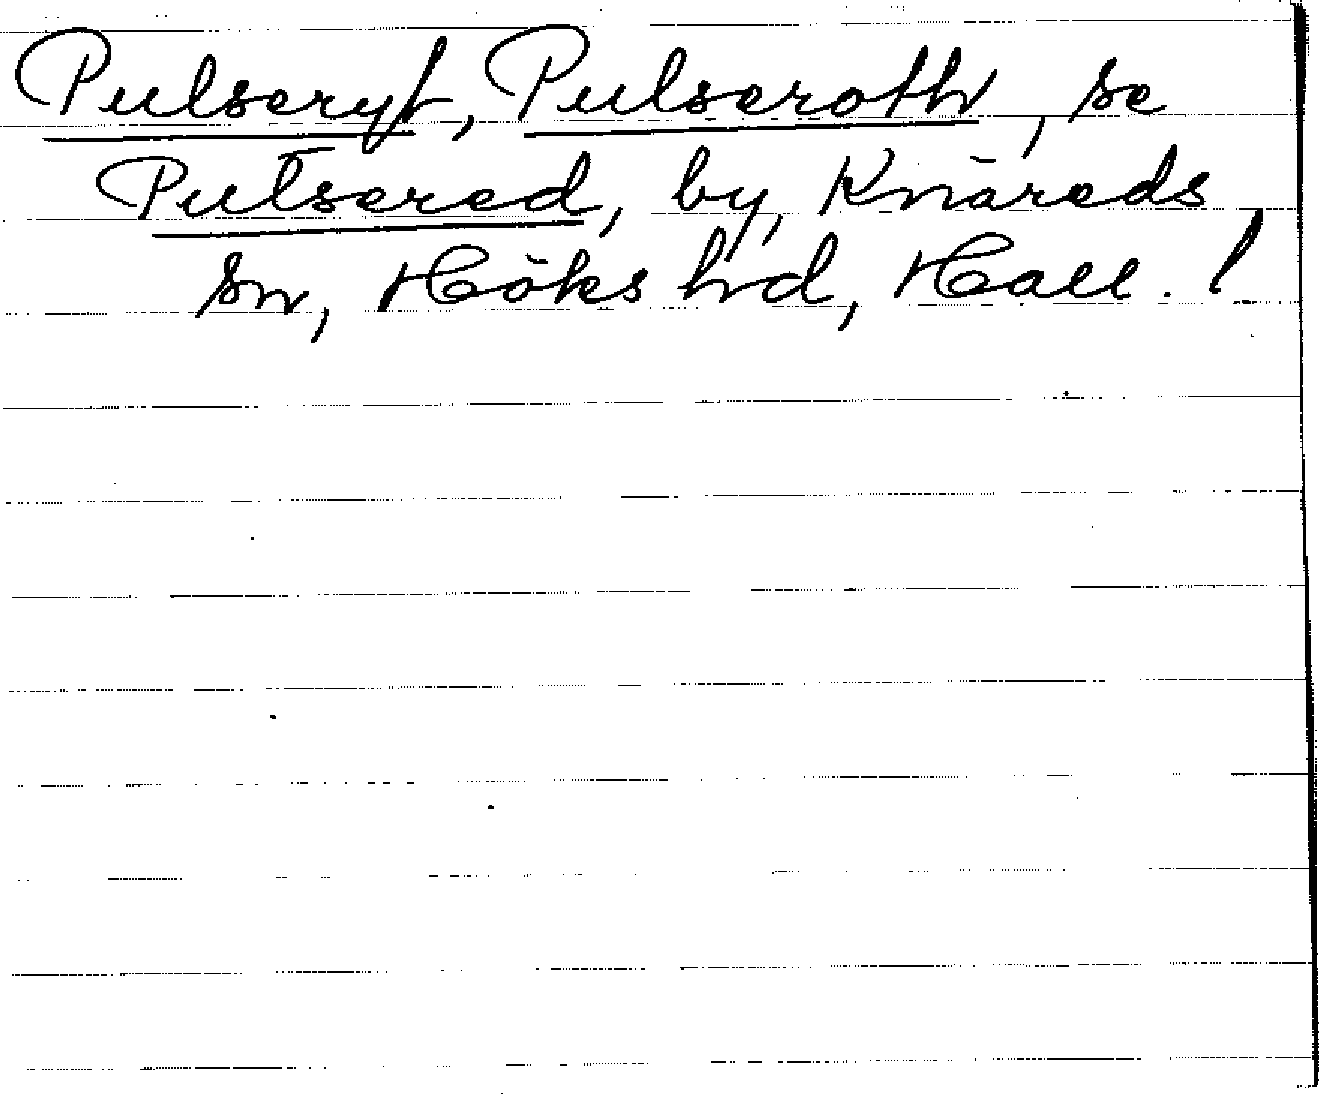 Pulseryt, Pulseroth, se
Pulsered, by, Knäreds
sn, Höks hd, Hall. !